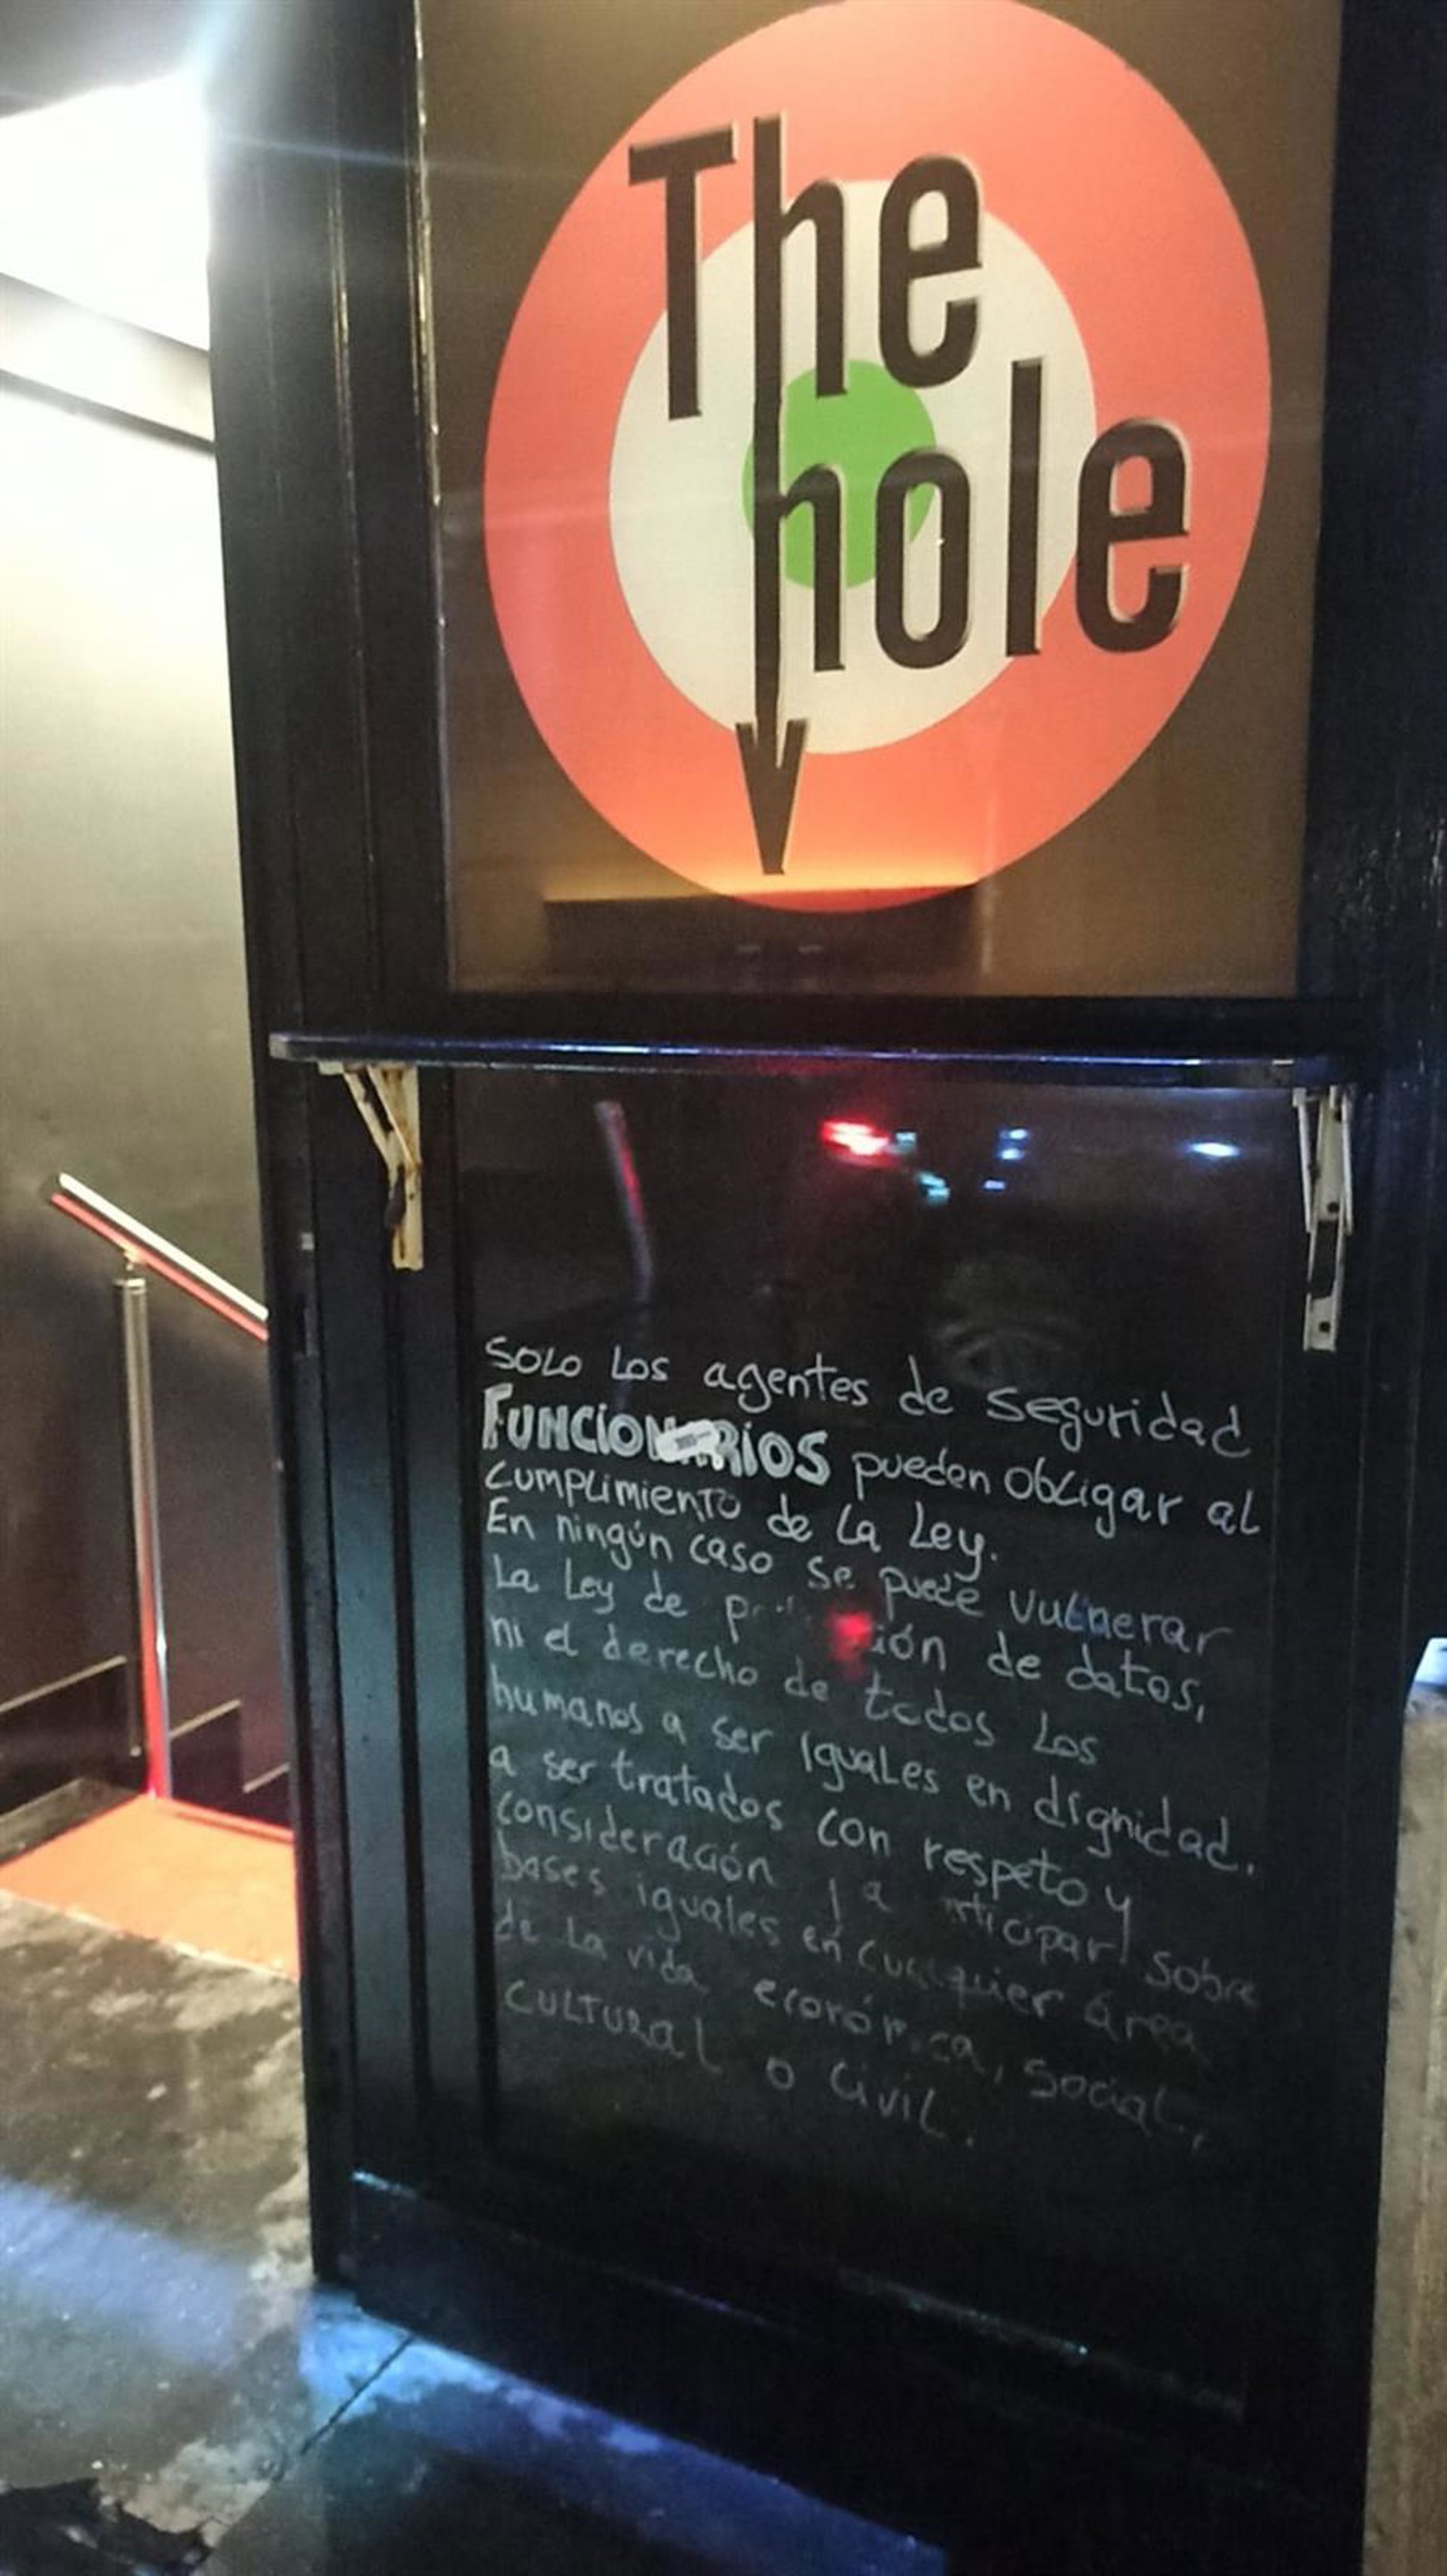 The
hole
SOLO LOS agentes de seguridad
FUNCIONARIOS pueden obligar al
cumplimiento de la Ley.
En ningún caso se puede vulnerar
La Ley de de datos,
ni el derecho de todos los
humanos a ser iguales en dignidad.
a ser tratados con respeto y
consideración a sobre
bases iguales en cualquier área
de la vida económica, social,
CULTURAL o civil.